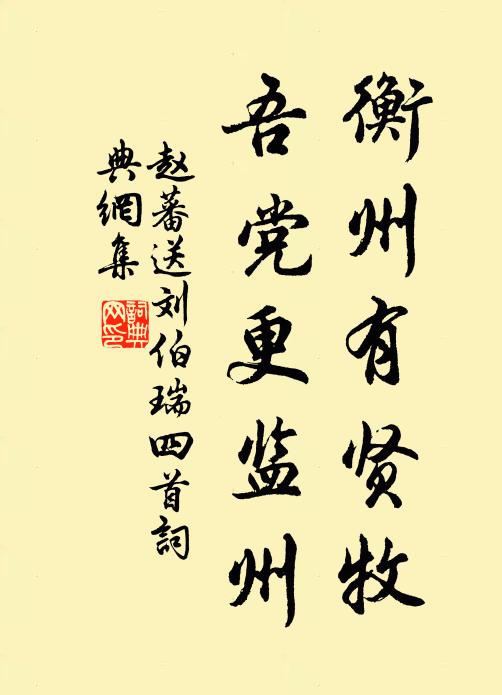 衡州有贤牧
吾党更监州
赵蕃送刘伯瑞四首詞
典網集
詞典
网印